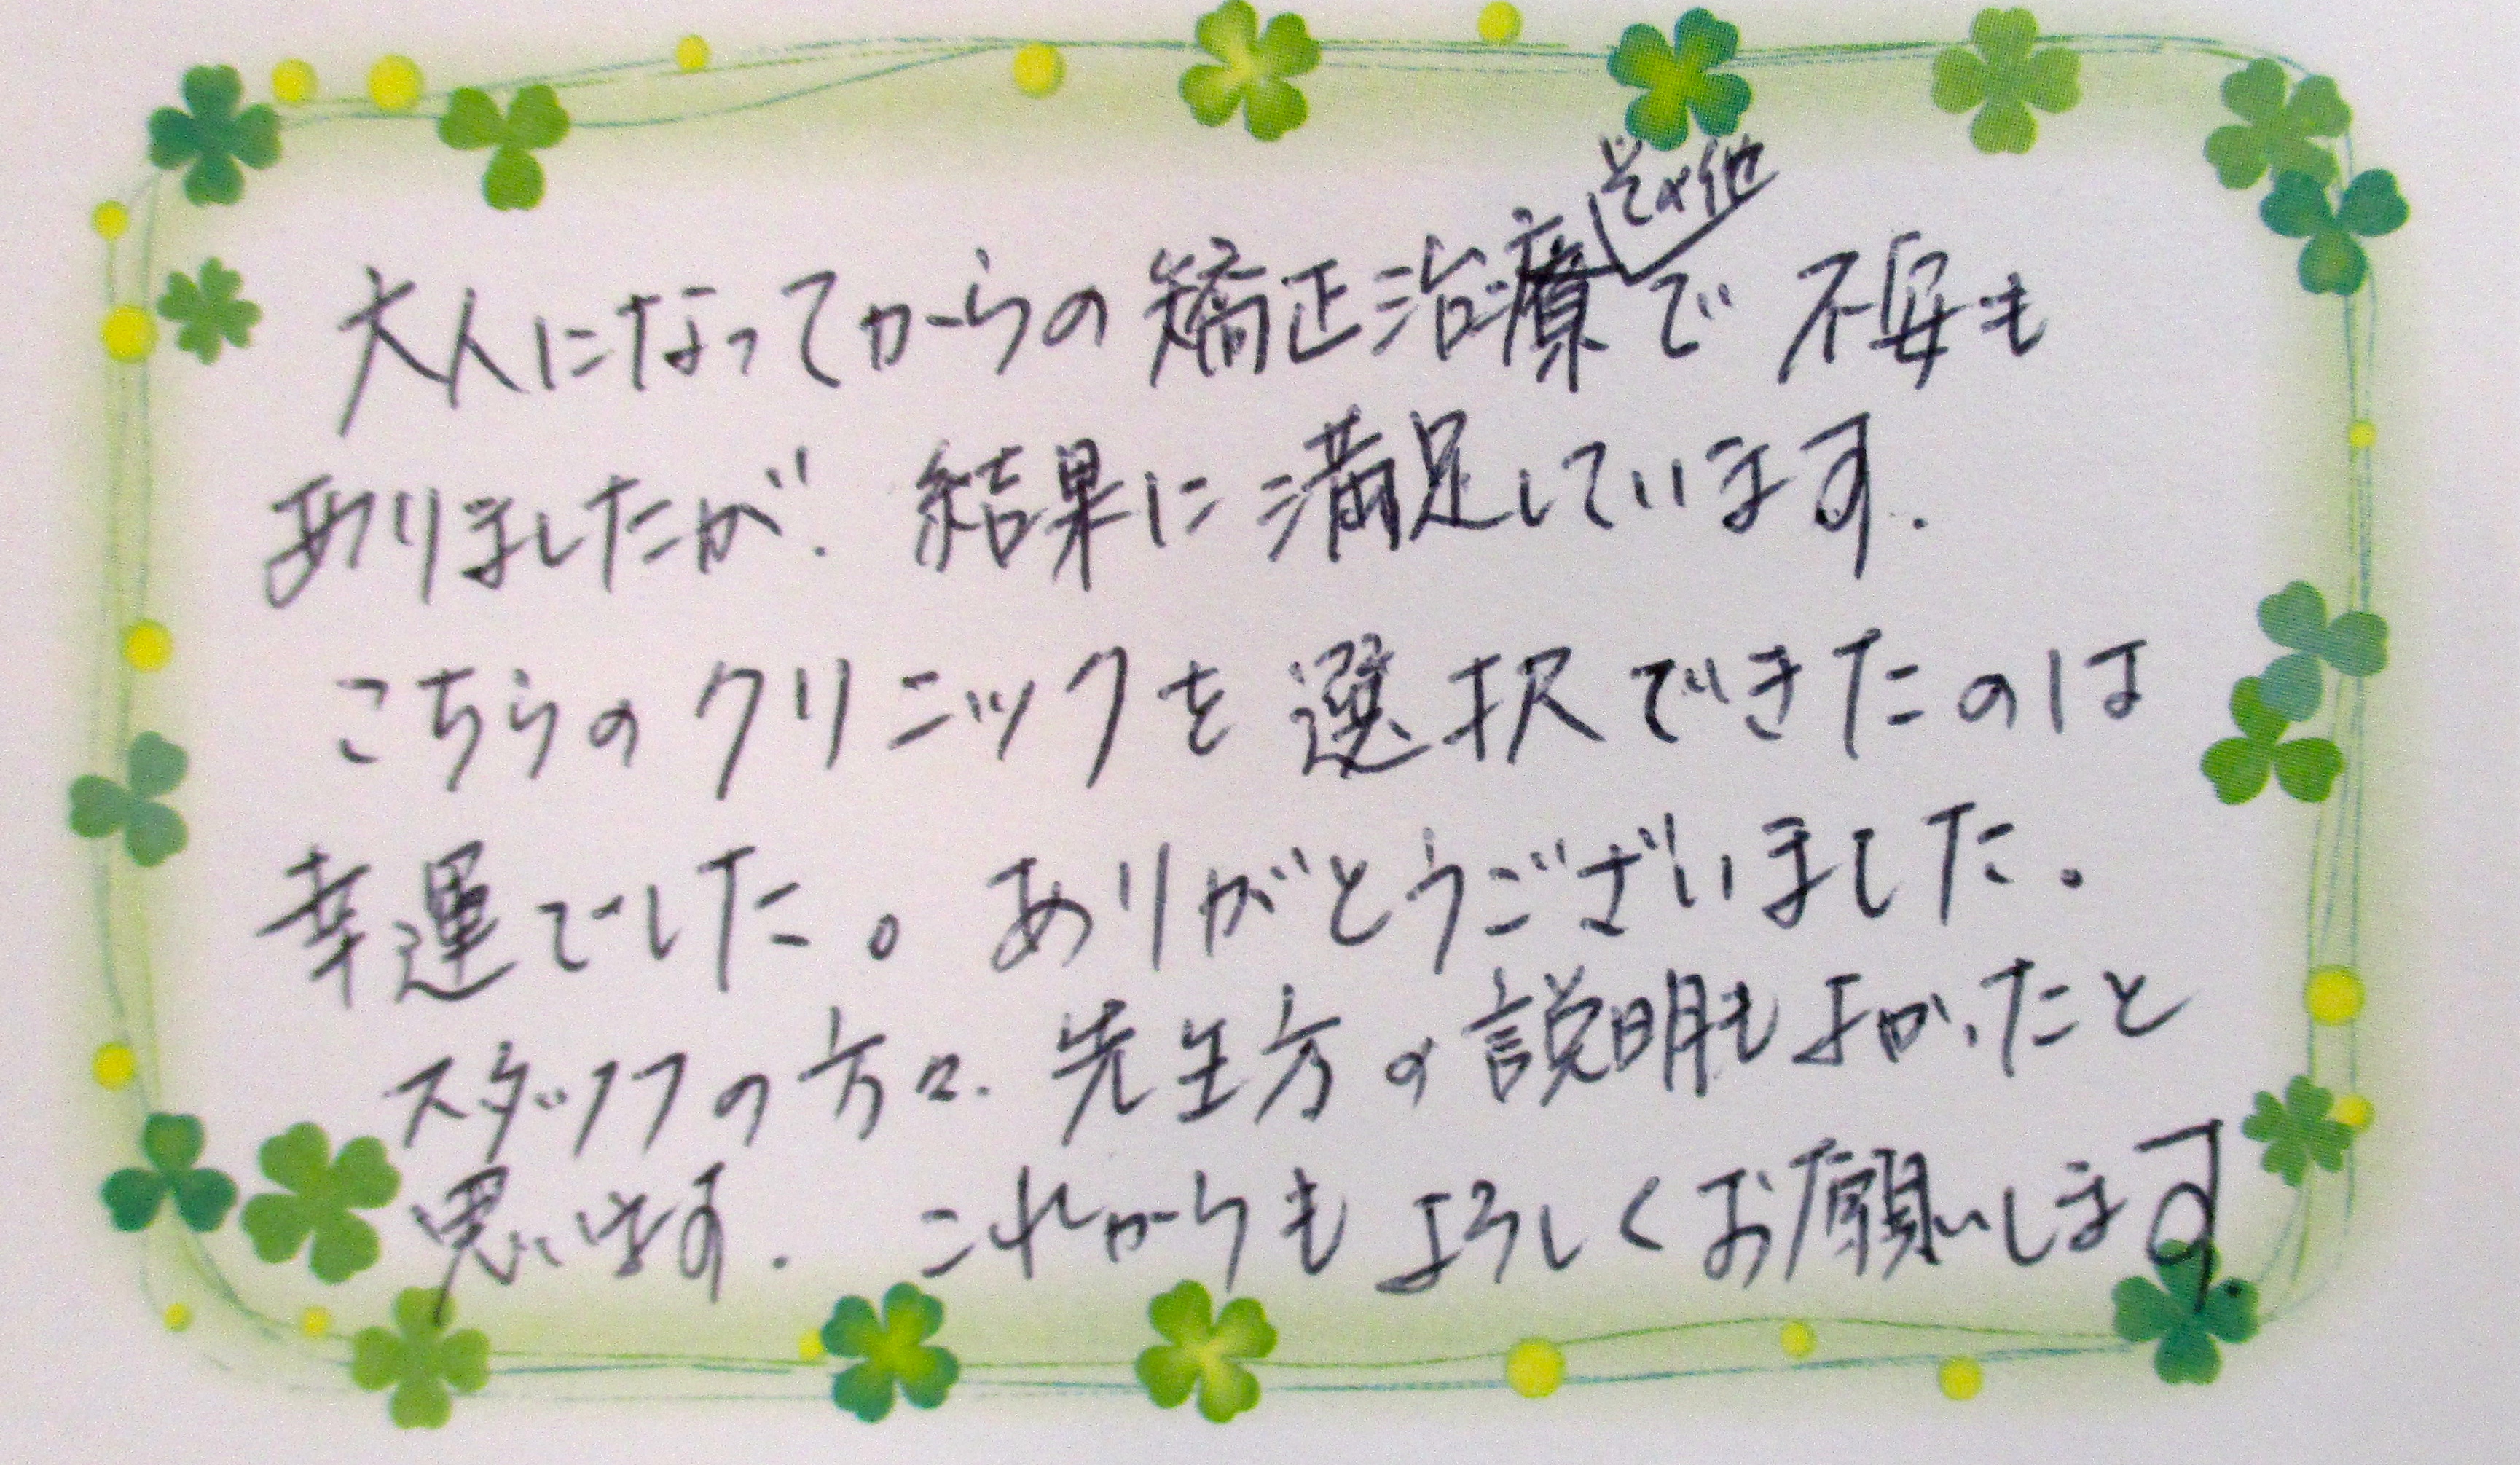 大人になってからの矯正治療その他で不安も
ありましたが、結果に満足しています。
こちらのクリニックを選択できたのは
幸運でした。ありがとうございました。
スタッフの方々、先生方の説明もよかったと
思います。これからもよろしくお願いします。